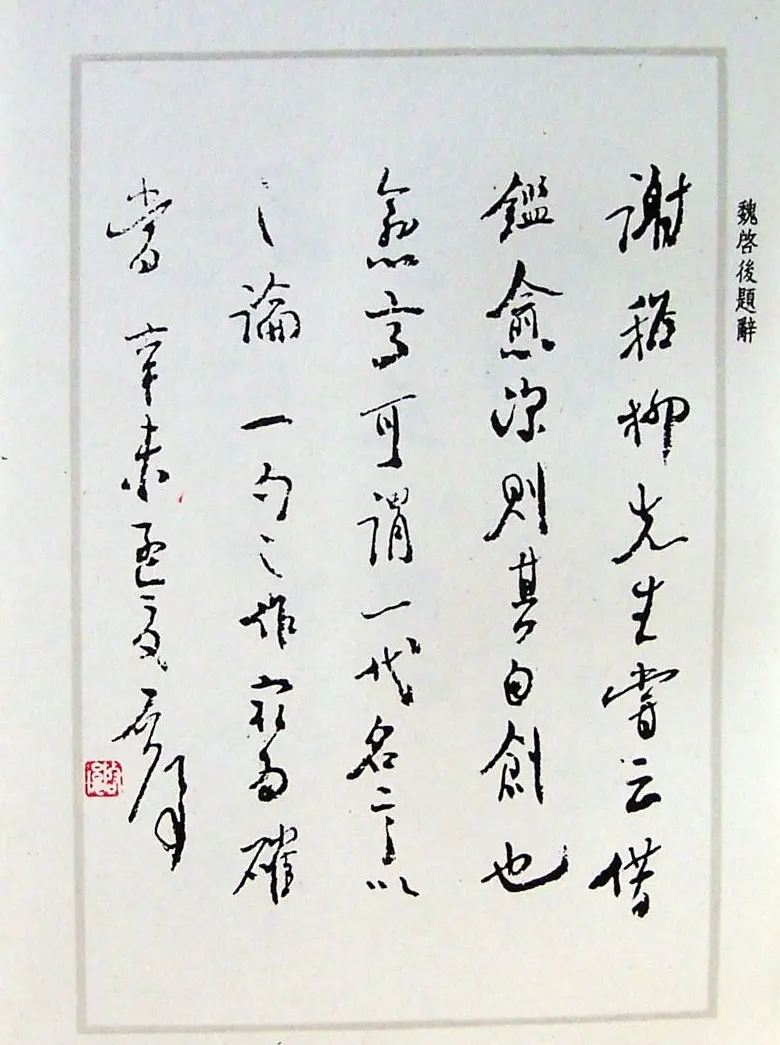 魏啓後題辭
謝稚柳先生嘗云借
鑑愈深則其自創也
愈高可謂一代名言以
之論一勺之作冣為確
當辛未孟夏啓後